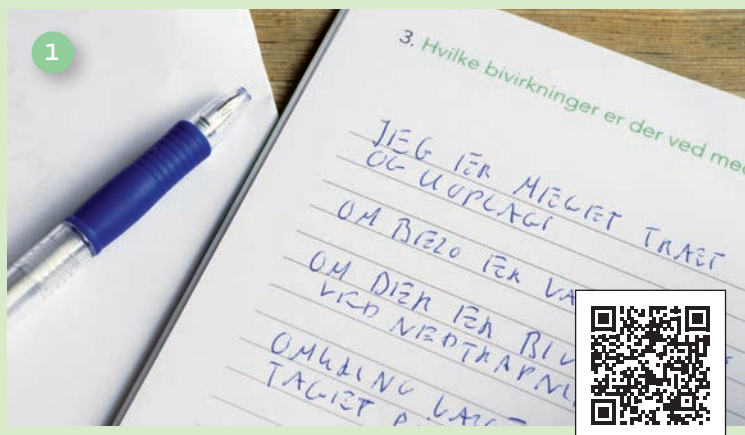 1
3. Hvilke bivirkninger er der ved
JEG ER MEGET TRÆT
OG UOPLAGT
OM BEZO ER
OM DER ER
VED NEDTRAPNI
OMKRING
TAGET